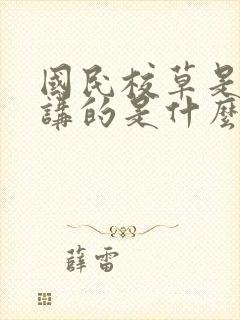 國民校草是
講的是什麼
薛雷